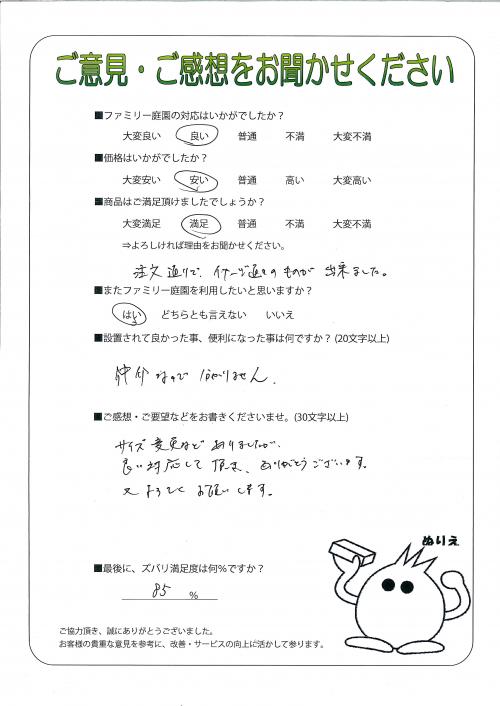 ご意見・ご感想をお聞かせください
■ファミリー庭園の対応はいかがでしたか？
大変良い 良い 普通 不満 大変不満
■価格はいかがでしたか？
大変安い 安い 普通 高い 大変高い
■商品はご満足頂けましたでしょうか？
大変満足 満足 普通 不満 大変不満
⇒よろしければ理由をお聞かせください。
注文通りで、イメージ通りのものが出来ました。
■またファミリー庭園を利用したいと思いますか？
はい どちらとも言えない いいえ
■設置されて良かった事、便利になった事は何ですか？(20文字以上)
仲介なので わかりません.
■ご感想・ご要望などをお書きくださいませ。(30文字以上)
サイズ変更など ありましたが、
良い対応して頂き、ありがとうございます。
又 よろしく お願いします。
ぬりえ
■最後に、ズバリ満足度は何％ですか？
85 ％
ご協力頂き、誠にありがとうございました。
お客様の貴重な意見を参考に、改善・サービスの向上に活かして参ります。